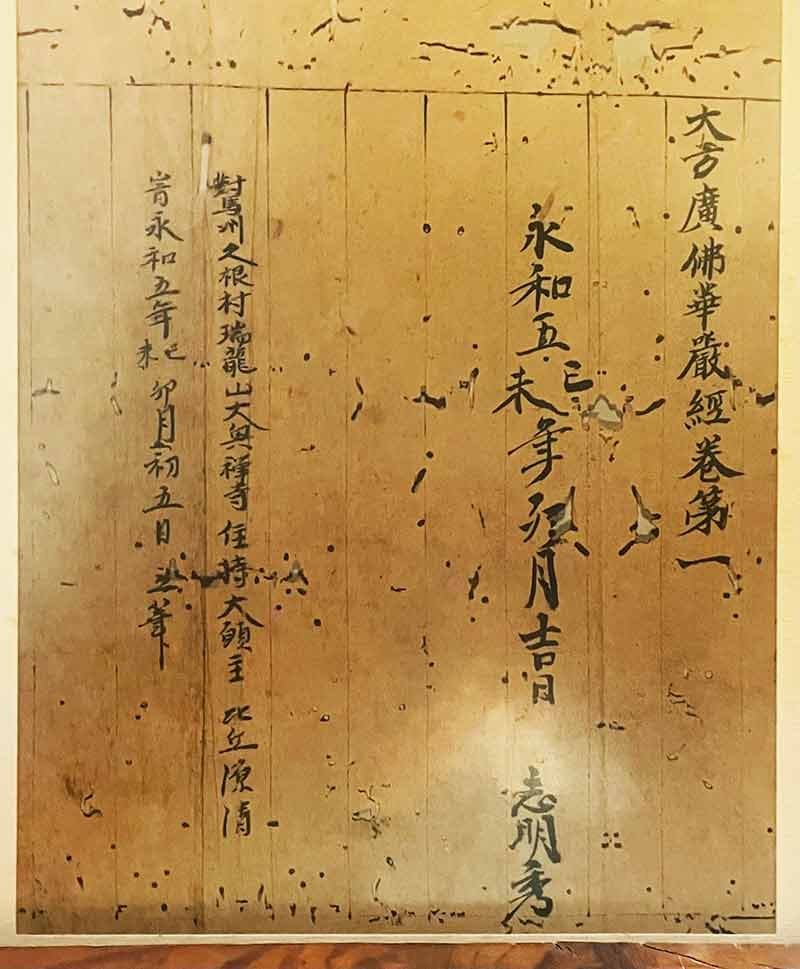 大方廣佛華嚴經卷第一
永和五己未年卯月吉日 志明秀
對馬州久根村瑞龍山大興禅寺住持大願主 比丘源清
旹永和五年己未卯月上初五日 立筆